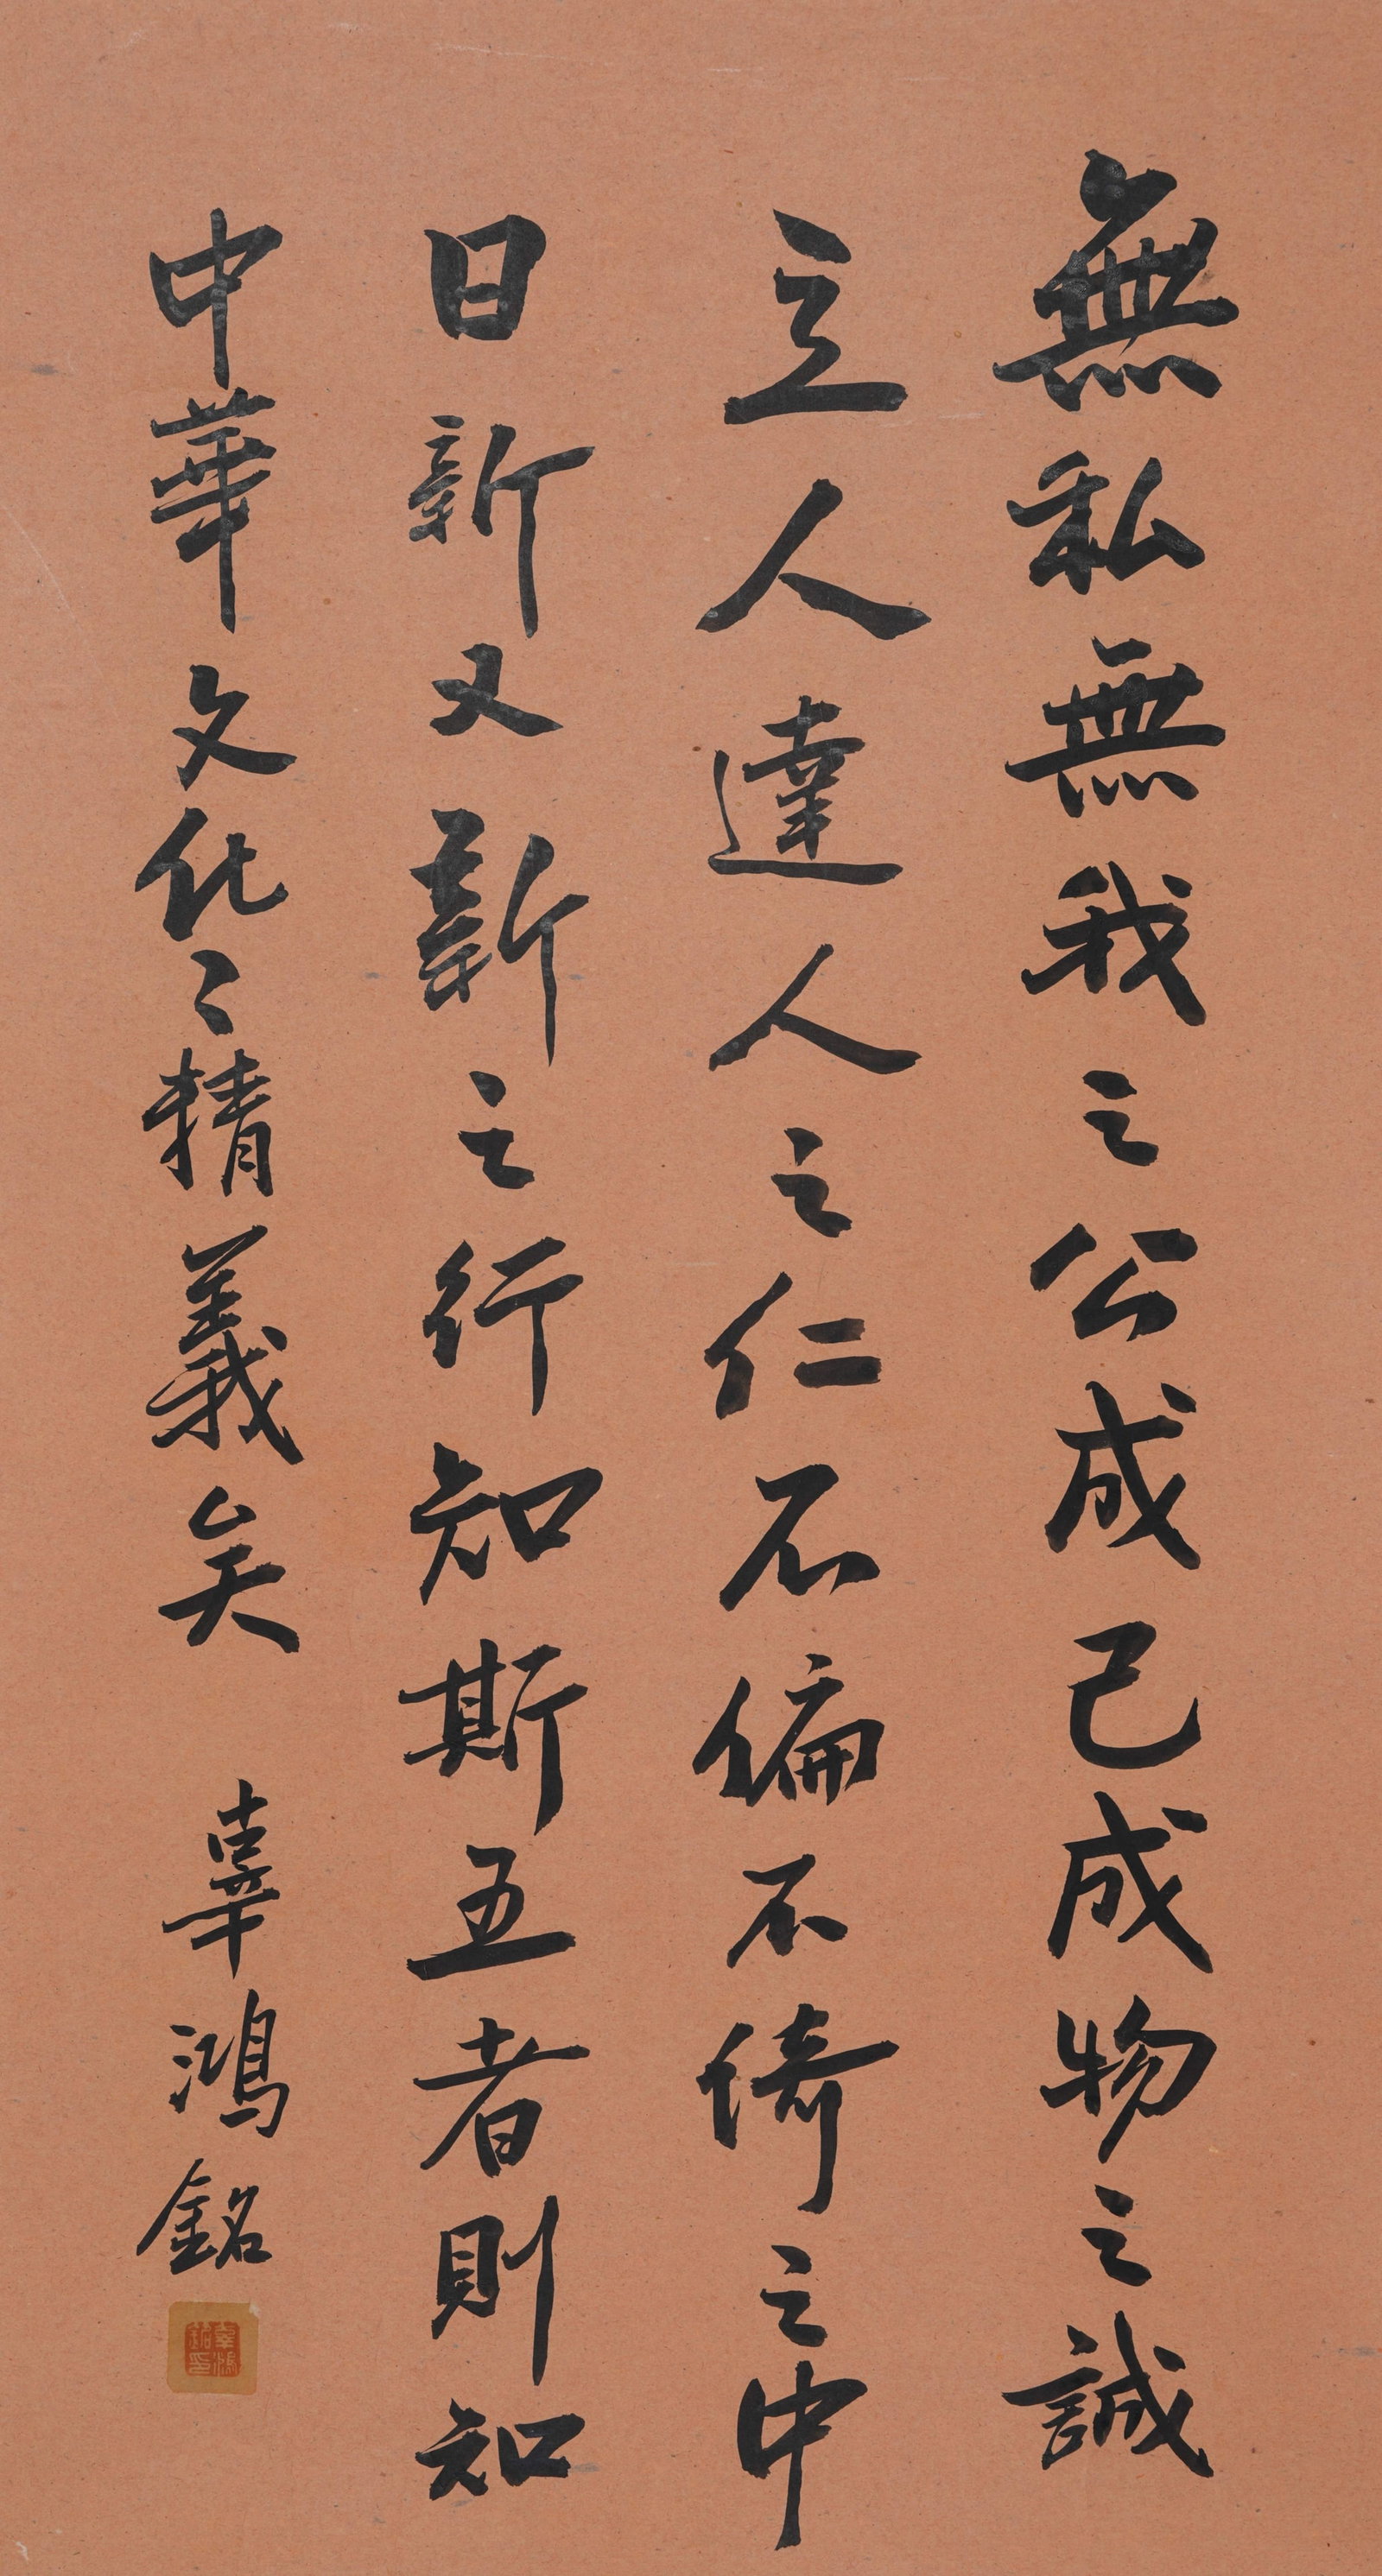 無私無我之公成己成物之誠
立人達人之仁不偏不倚之中
日新又新之行知斯五者則知
中華文化之精義矣 辜鴻銘
辜鴻銘印